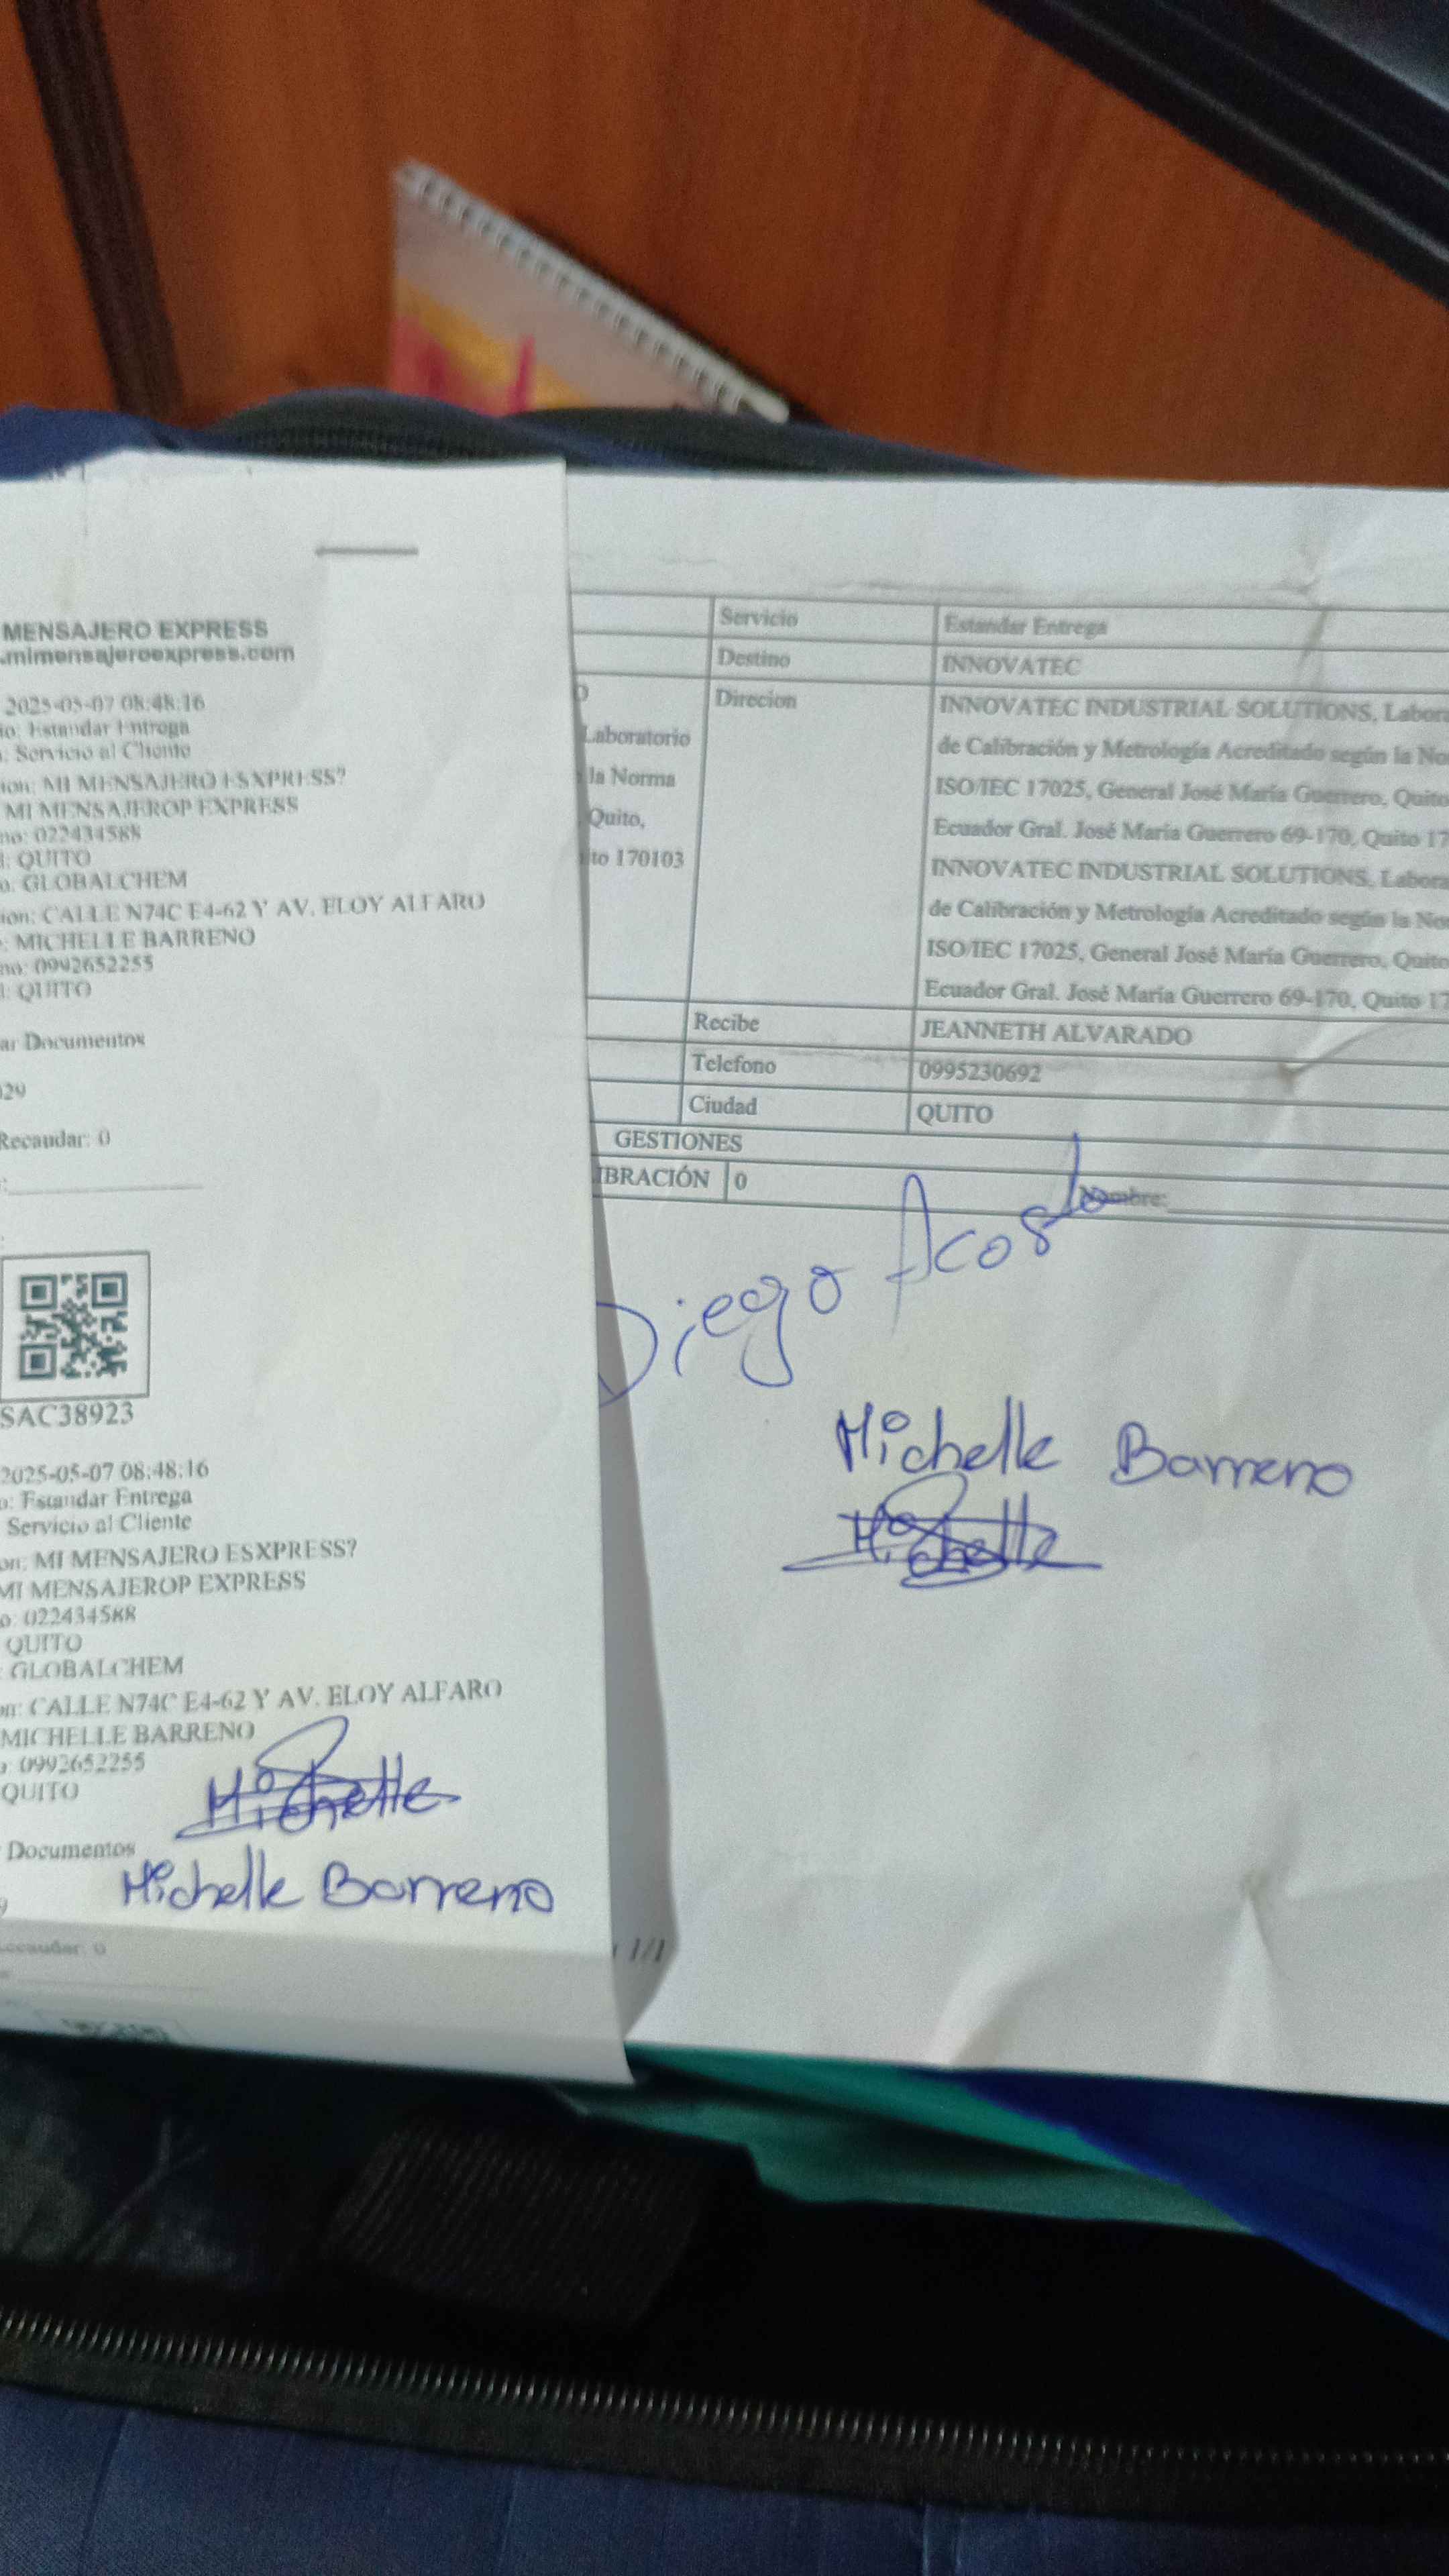 MENSAJERO EXPRESS
.mimensajeroexpress.com
2025-05-07 08:48:16
io: Estandar Entrega
: Servicio al Cliente
ion: MI MENSAJERO ESXPRESS?
MI MENSAJEROP EXPRESS
no: 022434588
: QUITO
o: GLOBALCHEM
ion: CALLE N74C E4-62 Y AV. ELOY ALFARO
: MICHELLE BARRENO
no: 0992652255
: QUITO
ar Documentos
029
Recaudar: 0
SAC38923
2025-05-07 08:48:16
o: Estandar Entrega
Servicio al Cliente
on: MI MENSAJERO ESXPRESS?
MI MENSAJEROP EXPRESS
o: 022434588
QUITO
: GLOBALCHEM
on: CALLE N74C E4-62 Y AV. ELOY ALFARO
MICHELLE BARRENO
o: 0992652255
QUITO
Michelle
Documentos
Michelle Barreno
ecaudar: 0
Servicio Estandar Entrega
Destino INNOVATEC
O
Laboratorio
la Norma
Quito,
ito 170103
Direcion
INNOVATEC INDUSTRIAL SOLUTIONS, Labora
de Calibración y Metrología Acreditado según la No
ISO/IEC 17025, General José María Guerrero, Quito
Ecuador Gral. José María Guerrero 69-170, Quito 17
INNOVATEC INDUSTRIAL SOLUTIONS, Labora
de Calibración y Metrología Acreditado según la No
ISO/IEC 17025, General José María Guerrero, Quito
Ecuador Gral. José María Guerrero 69-170, Quito 17
Recibe JEANNETH ALVARADO
Telefono 0995230692
Ciudad QUITO
GESTIONES
IBRACIÓN 0
Nombre:
Diego Acosta
Michelle Barreno
Michelle
1/1